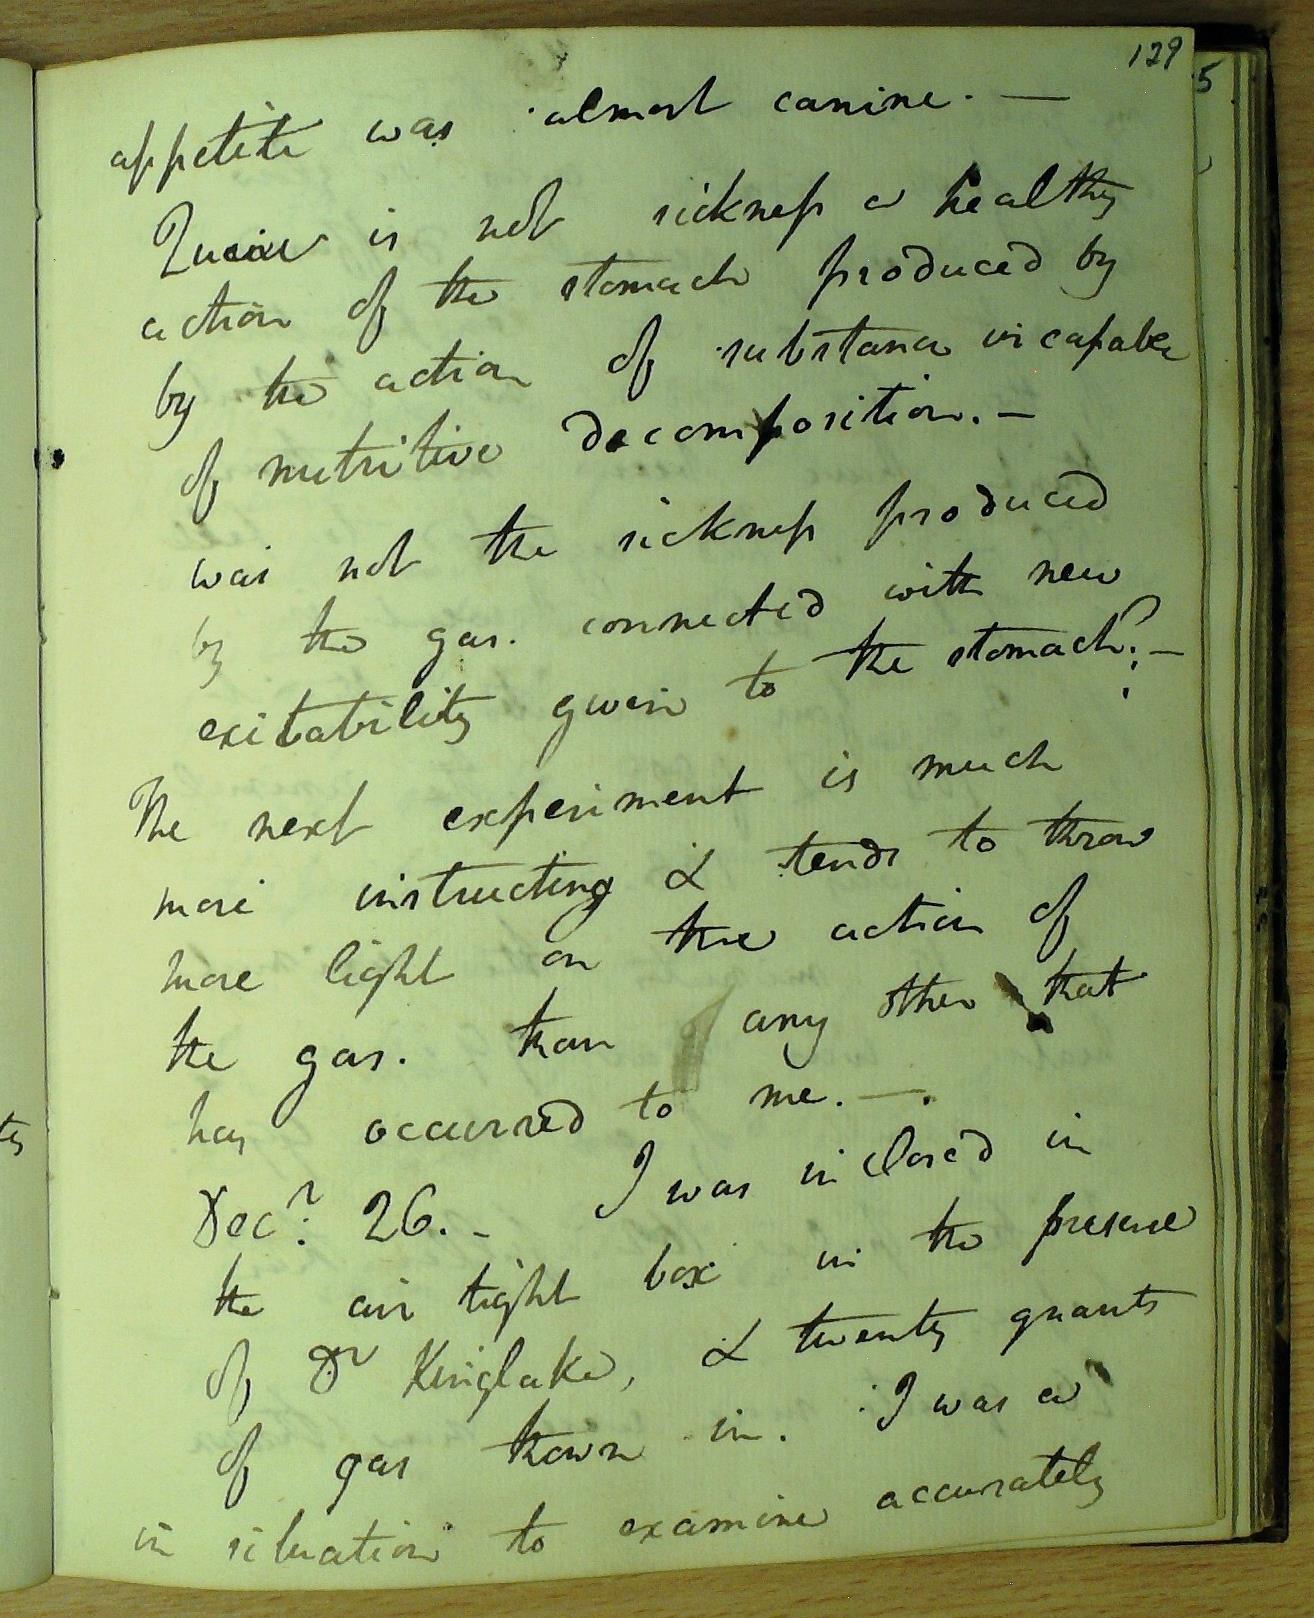 129
5
appetite was almost canine. —
Quere is not sickness a healthy
action of the stomach produced by
by the action of substance incapable
of nutritive decomposition. —
was not the sickness produced
by the gas. connected with new
exitability given to the stomach? —
The next experiment is much
more instructing & tends to throw
more light on the action of
the gas. than any other that
has occurred to me. —.
Decr. 26. - I was inclosed in
the air tight box in the presence
of Dr Kinglake, & twenty quarts
of gas thown in. I was a
in situation to examine accurately